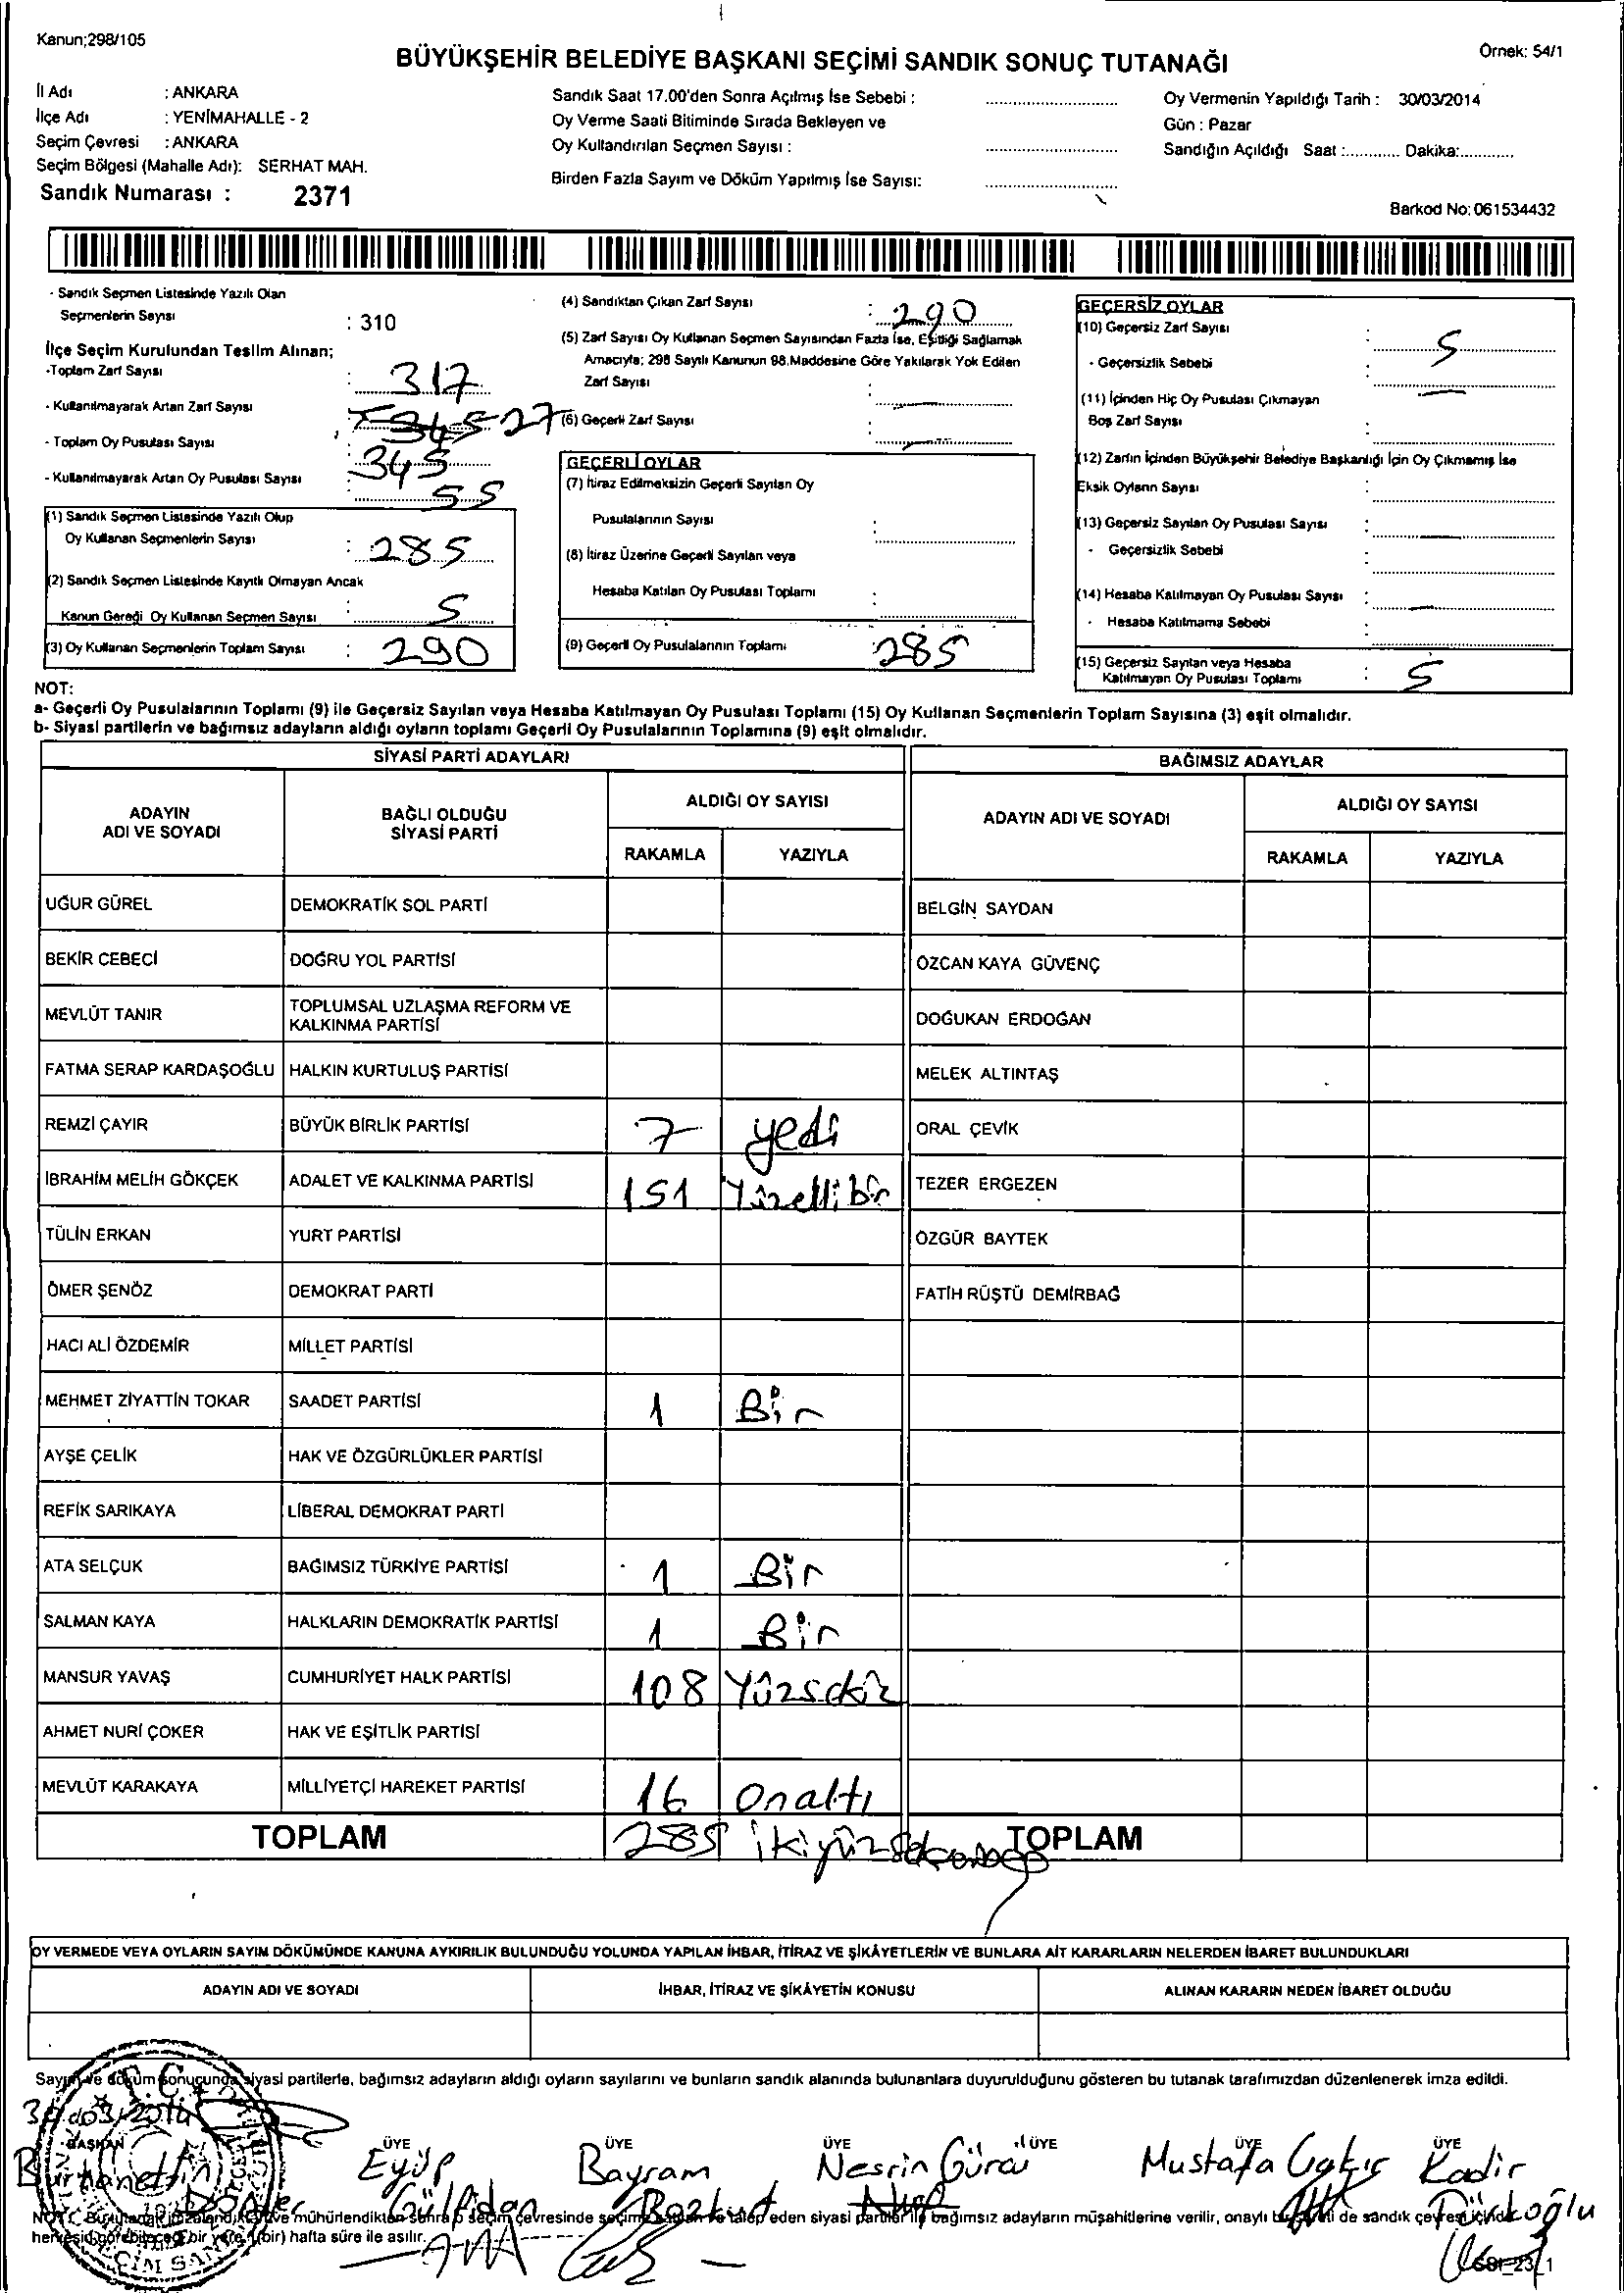 Kanun;298/105
Örnek: 54/1
BÜYÜKŞEHİR BELEDİYE BAŞKANI SEÇİMİ SANDIK SONUÇ TUTANAĞI
İl Adı : ANKARA
İlçe Adı : YENİMAHALLE - 2
Seçim Çevresi : ANKARA
Seçim Bölgesi (Mahalle Adı): SERHAT MAH.
Sandık Numarası : 2371
Sandık Saat 17.00'den Sonra Açılmış İse Sebebi :
Oy Verme Saati Bitiminde Sırada Bekleyen ve
Oy Kullandırılan Seçmen Sayısı :
Birden Fazla Sayım ve Döküm Yapılmış İse Sayısı:
Oy Vermenin Yapıldığı Tarih : 30/03/2014
Gün : Pazar
Sandığın Açıldığı Saat :............ Dakika:............
Barkod No: 061534432
- Sandık Seçmen Listesinde Yazılı Olan
Seçmenlerin Sayısı : 310
İlçe Seçim Kurulundan Teslim Alınan;
-Toplam Zarf Sayısı : 317
- Kullanılmayarak Artan Zarf Sayısı : 27
- Toplam Oy Pusulası Sayısı : 345
- Kullanılmayarak Artan Oy Pusulası Sayısı : 55
(1) Sandık Seçmen Listesinde Yazılı Olup
Oy Kullanan Seçmenlerin Sayısı : 285
(2) Sandık Seçmen Listesinde Kayıtlı Olmayan Ancak
Kanun Gereği Oy Kullanan Seçmen Sayısı : 5
(3) Oy Kullanan Seçmenlerin Toplam Sayısı : 290
(4) Sandıktan Çıkan Zarf Sayısı : 290
(5) Zarf Sayısı Oy Kullanan Seçmen Sayısından Fazla İse, Eşitliği Sağlamak
Amacıyla; 298 Sayılı Kanunun 98.Maddesine Göre Yakılarak Yok Edilen
Zarf Sayısı : —
(6) Geçerli Zarf Sayısı : —
GEÇERLİ OYLAR
(7) İtiraz Edilmeksizin Geçerli Sayılan Oy
Pusulalarının Sayısı :
(8) İtiraz Üzerine Geçerli Sayılan veya
Hesaba Katılan Oy Pusulası Toplamı :
(9) Geçerli Oy Pusulalarının Toplamı : 285
GEÇERSİZ OYLAR
(10) Geçersiz Zarf Sayısı : 5
- Geçersizlik Sebebi :
(11) İçinden Hiç Oy Pusulası Çıkmayan —
Boş Zarf Sayısı :
(12) Zarfın İçinden Büyükşehir Belediye Başkanlığı İçin Oy Çıkmamış İse
Eksik Oyların Sayısı :
(13) Geçersiz Sayılan Oy Pusulası Sayısı : —
- Geçersizlik Sebebi :
(14) Hesaba Katılmayan Oy Pusulası Sayısı : —
- Hesaba Katılmama Sebebi :
(15) Geçersiz Sayılan veya Hesaba
Katılmayan Oy Pusulası Toplamı : 5
NOT:
a- Geçerli Oy Pusulalarının Toplamı (9) ile Geçersiz Sayılan veya Hesaba Katılmayan Oy Pusulası Toplamı (15) Oy Kullanan Seçmenlerin Toplam Sayısına (3) eşit olmalıdır.
b- Siyasi partilerin ve bağımsız adayların aldığı oyların toplamı Geçerli Oy Pusulalarının Toplamına (9) eşit olmalıdır.
SİYASİ PARTİ ADAYLARI
BAĞIMSIZ ADAYLAR
ADAYIN ADI VE SOYADI
BAĞLI OLDUĞU SİYASİ PARTİ
ALDIĞI OY SAYISI
RAKAMLA YAZIYLA
ADAYIN ADI VE SOYADI
ALDIĞI OY SAYISI
RAKAMLA YAZIYLA
UĞUR GÜREL DEMOKRATİK SOL PARTİ BELGİN SAYDAN
BEKİR CEBECİ DOĞRU YOL PARTİSİ ÖZCAN KAYA GÜVENÇ
MEVLÜT TANIR TOPLUMSAL UZLAŞMA REFORM VE KALKINMA PARTİSİ DOĞUKAN ERDOĞAN
FATMA SERAP KARDAŞOĞLU HALKIN KURTULUŞ PARTİSİ MELEK ALTINTAŞ
REMZİ ÇAYIR BÜYÜK BİRLİK PARTİSİ 7 yedi ORAL ÇEVİK
İBRAHİM MELİH GÖKÇEK ADALET VE KALKINMA PARTİSİ 151 Yüzellibir TEZER ERGEZEN
TÜLİN ERKAN YURT PARTİSİ ÖZGÜR BAYTEK
ÖMER ŞENÖZ DEMOKRAT PARTİ FATİH RÜŞTÜ DEMİRBAĞ
HACI ALİ ÖZDEMİR MİLLET PARTİSİ
MEHMET ZİYATTİN TOKAR SAADET PARTİSİ 1 Bir
AYŞE ÇELİK HAK VE ÖZGÜRLÜKLER PARTİSİ
REFİK SARIKAYA LİBERAL DEMOKRAT PARTİ
ATA SELÇUK BAĞIMSIZ TÜRKİYE PARTİSİ 1 Bir
SALMAN KAYA HALKLARIN DEMOKRATİK PARTİSİ 1 Bir
MANSUR YAVAŞ CUMHURİYET HALK PARTİSİ 108 Yüzsekiz
AHMET NURİ ÇOKER HAK VE EŞİTLİK PARTİSİ
MEVLÜT KARAKAYA MİLLİYETÇİ HAREKET PARTİSİ 16 Onaltı
TOPLAM 285 ikiyüzseksenbeş TOPLAM
OY VERMEDE VEYA OYLARIN SAYIM DÖKÜMÜNDE KANUNA AYKIRILIK BULUNDUĞU YOLUNDA YAPILAN İHBAR, İTİRAZ VE ŞİKÂYETLERİN VE BUNLARA AİT KARARLARIN NELERDEN İBARET BULUNDUKLARI
ADAYIN ADI VE SOYADI İHBAR, İTİRAZ VE ŞİKÂYETİN KONUSU ALINAN KARARIN NEDEN İBARET OLDUĞU
Sayım ve döküm sonucunda siyasi partilerle, bağımsız adayların aldığı oyların sayılarını ve bunların sandık alanında bulunanlara duyurulduğunu gösteren bu tutanak tarafımızdan düzenlenerek imza edildi.
30/03/2014
BAŞKAN ÜYE ÜYE ÜYE ÜYE ÜYE ÜYE
Burhanettin Eyüp Bayram Nesrin Gürcü Mustafa Çakır Kadir
Gülfidan Bozkurt Türkoğlu
mühürlendikten sonra o seçim çevresinde talep eden siyasi partiler ile bağımsız adayların müşahitlerine verilir, onaylı de sandık çevresi içinde
bir yere (bir) hafta süre ile asılır.
T.C.